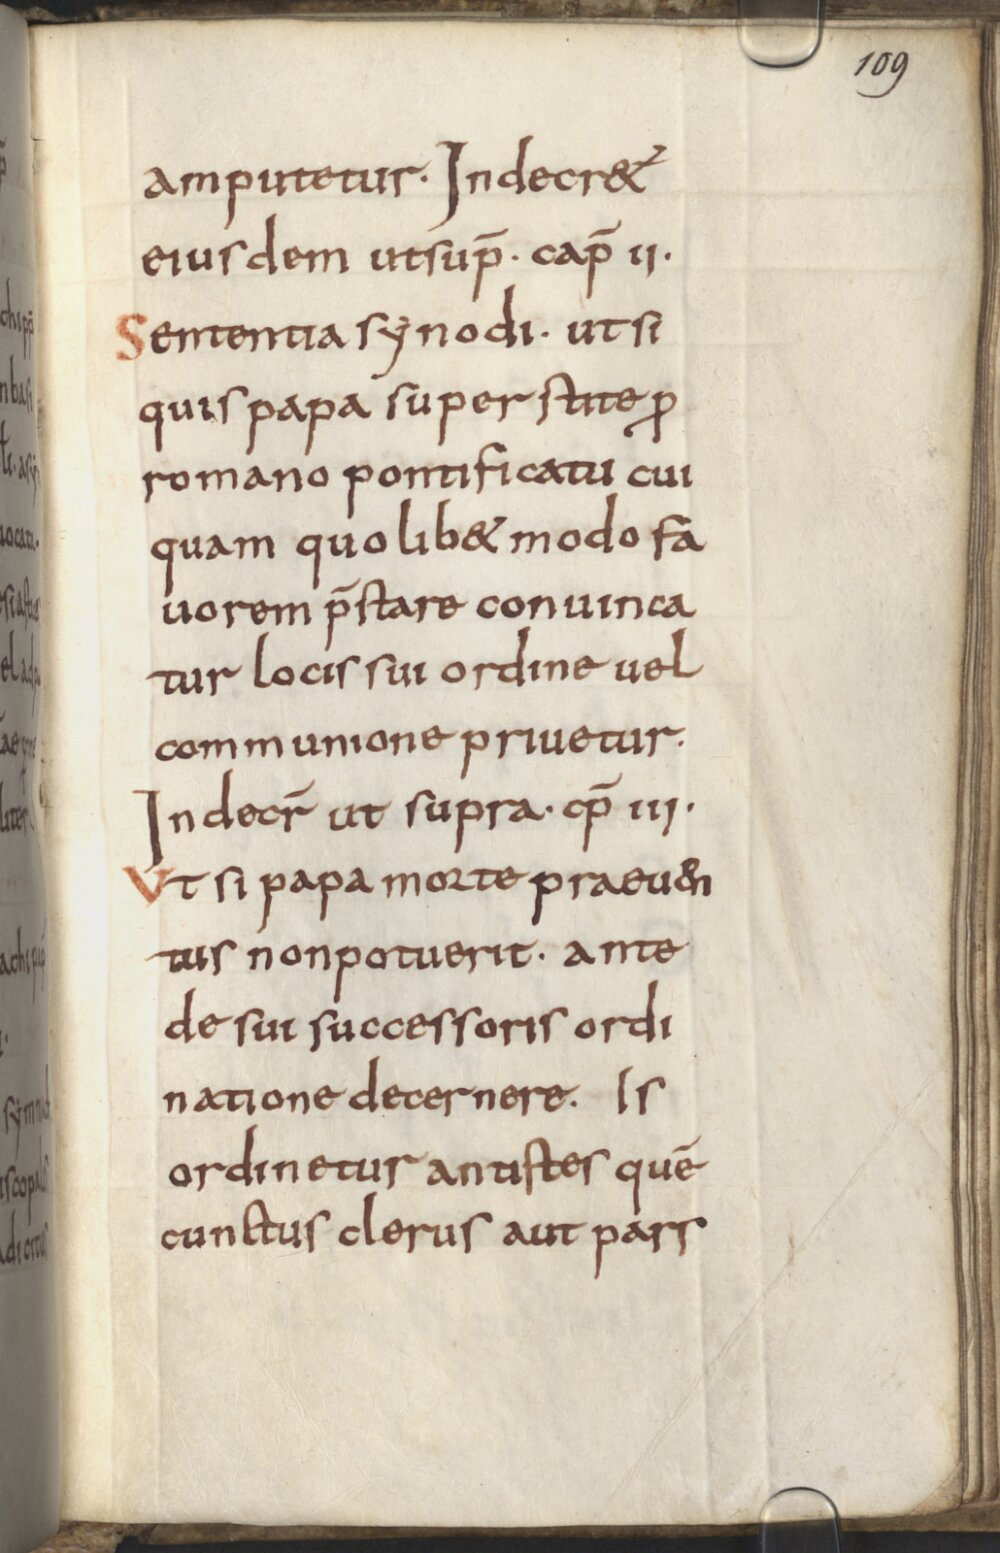 109
amputetur. In decr&
eiusdem utsup̄. cap̄ ii.
Sententia sẏnodi. ut si
quis papa superstite ꝓ
romano pontificatu cui
quam quolib& modo fa
uorem p̄stare conuinca
tur locis sui ordine uel
communione priuetur.
In decr̄ ut supra. cp̄ iii.
Vt si papa morte praeuen
tus non potuerit. ante
de sui successoris ordi
natione decernere. Is
ordinetur antistes quē
cunctus clerus aut pars